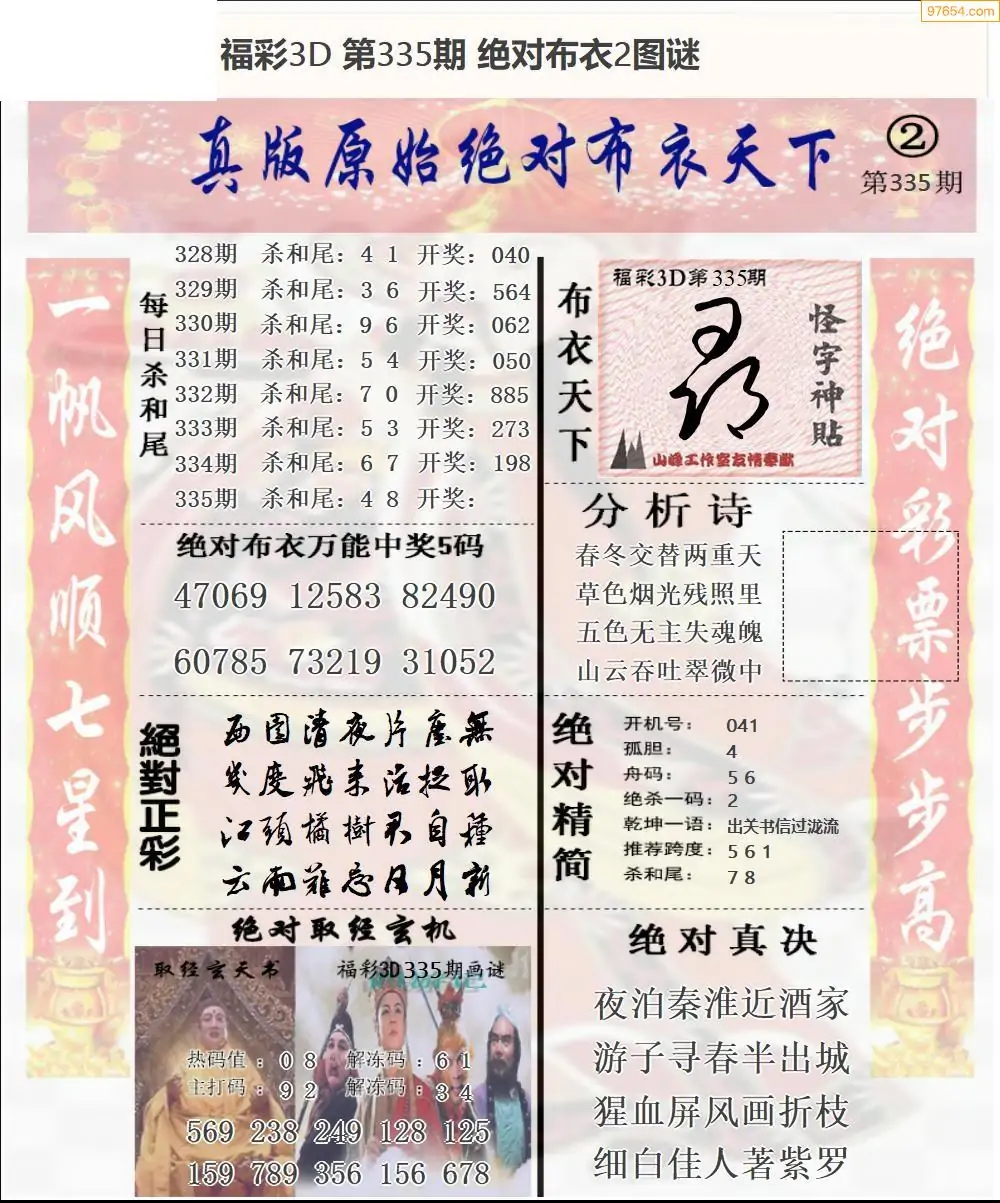 97654.com
福彩3D 第335期 绝对布衣2图谜
真版原始绝对布衣天下
②
第335期
一帆风顺七星到
每日杀和尾
328期 杀和尾：4 1 开奖：040
329期 杀和尾：3 6 开奖：564
330期 杀和尾：9 6 开奖：062
331期 杀和尾：5 4 开奖：050
332期 杀和尾：7 0 开奖：885
333期 杀和尾：5 3 开奖：273
334期 杀和尾：6 7 开奖：198
335期 杀和尾：4 8 开奖：
绝对布衣万能中奖5码
47069 12583 82490
60785 73219 31052
絕對正彩
西园清夜片尘無
几度飛来活捉取
江頭橘樹君自種
云雨难忘日月新
绝对取经玄机
取经玄天书
福彩3D335期画谜
热码值：0 8 解冻码：6 1
主打码：9 2 解冻码：3 4
569 238 249 128 125
159 789 356 156 678
布衣天下
福彩3D第335期
怪字神贴
山峰工作室友情奉献
分析诗
春冬交替两重天
草色烟光残照里
五色无主失魂魄
山云吞吐翠微中
绝对精简
开机号：041
孤胆：4
舟码：5 6
绝杀一码：2
乾坤一语：出关书信过泷流
推荐跨度：5 6 1
杀和尾：7 8
绝对真决
夜泊秦淮近酒家
游子寻春半出城
猩血屏风画折枝
细白佳人著紫罗
绝对彩票步步高